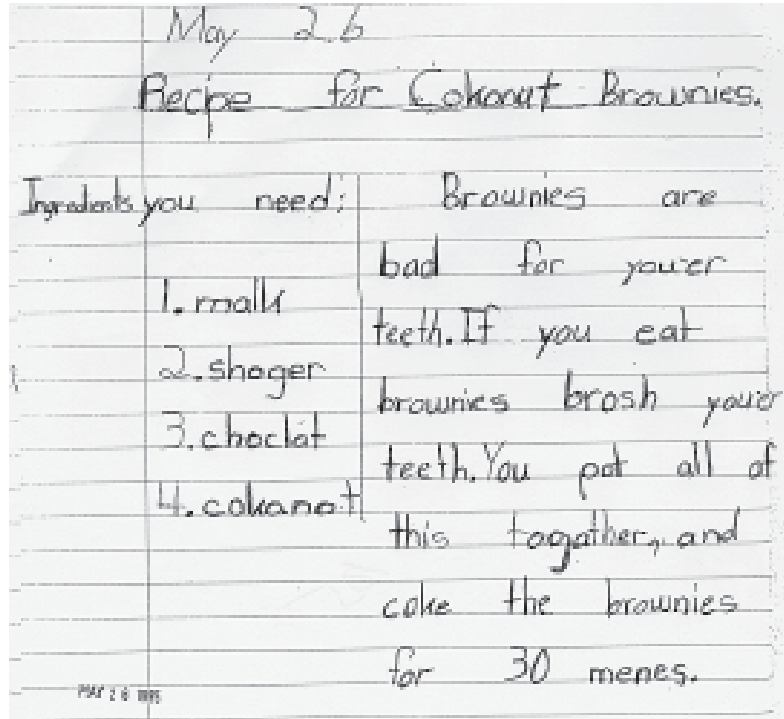 May 26
Recipe for Cokonut Brownies.
Ingredients you need:
1. malk
2. shoger
3. choclat
4. cokanot
Brownies are
bad for you'er
teeth. If you eat
brownies brosh you'er
teeth. You pot all of
this togather, and
coke the brownies
for 30 menes.
MAY 26 1995